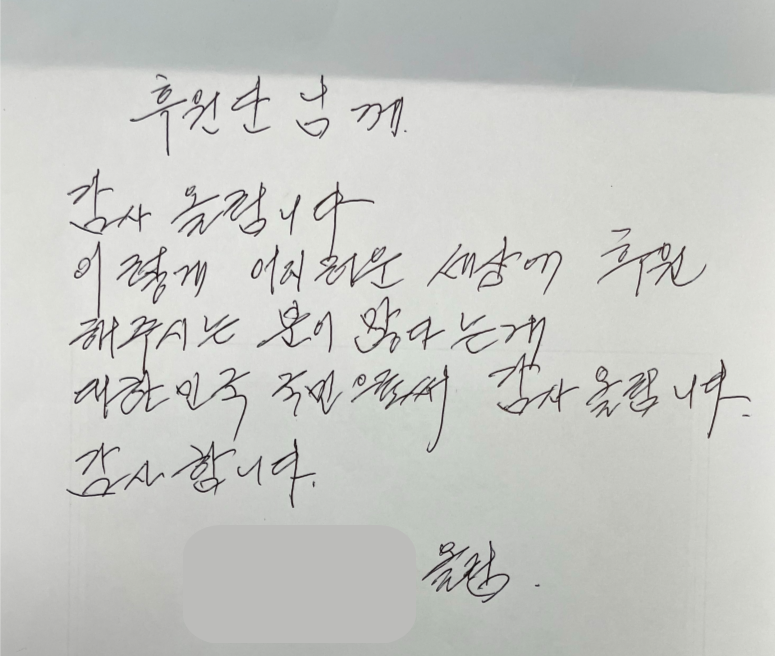 후원단 님께.
감사 올림니다
이렇게 어지러운 세상에 후원
해주시는 분이 많다는게
대한민국 국민으로써 감사 올림니다.
감사합니다.
올림.